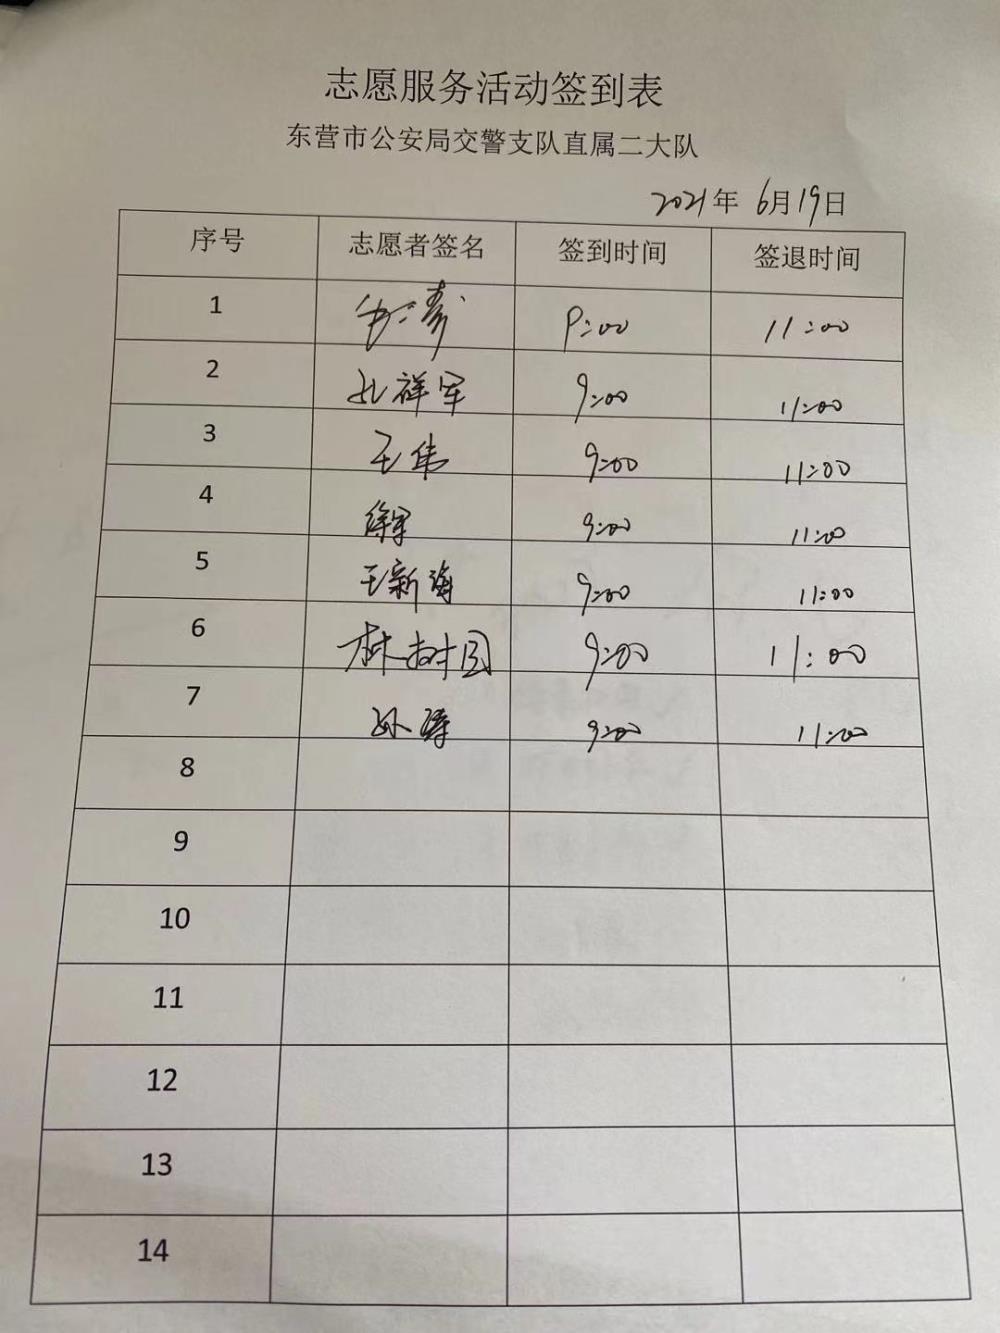 志愿服务活动签到表
东营市公安局交警支队直属二大队
2021年 6月19日
序号 志愿者签名 签到时间 签退时间
1 9:00 11:00
2 孔祥军 9:00 11:00
3 王伟 9:00 11:00
4 徐军 9:00 11:00
5 王新海 9:00 11:00
6 林树国 9:00 11:00
7 孙涛 9:00 11:00
8
9
10
11
12
13
14